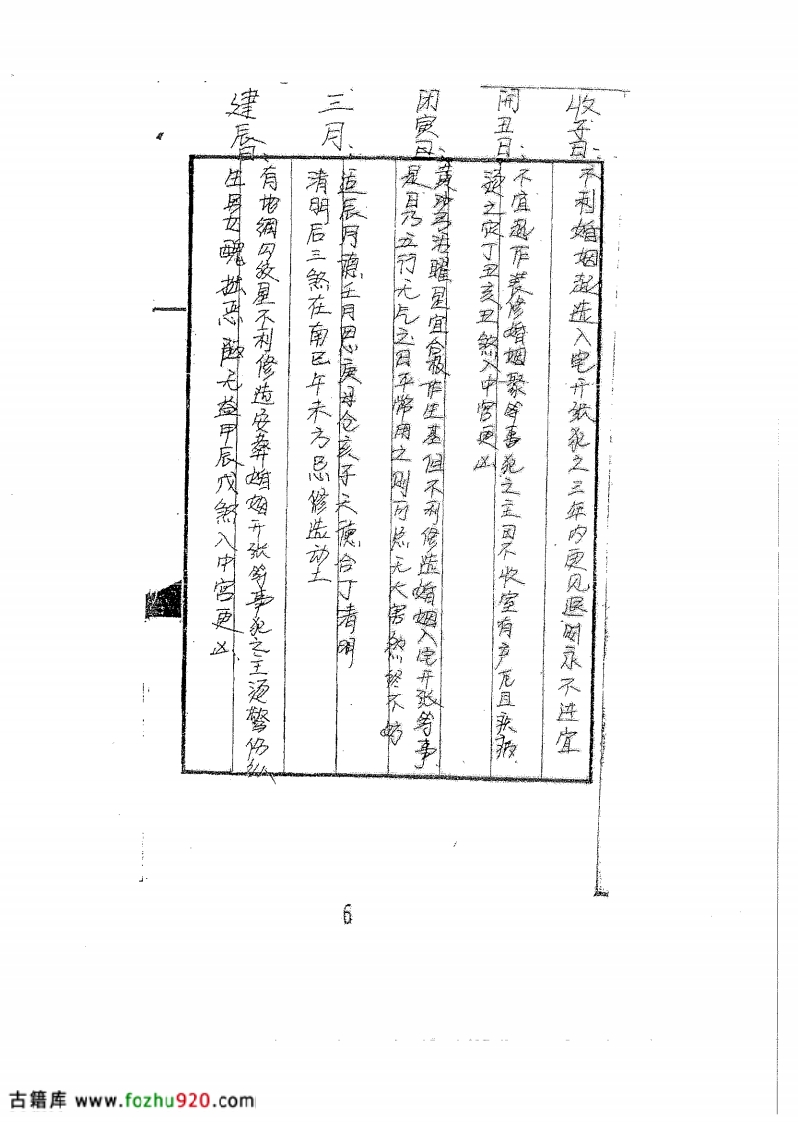 收子日:不利婚姻起造入宅开张犯之三年内更见退财永不进宜
开丑日:不宜造作装修婚姻聚等事犯之主因不收室有产厄且疾病
逐之定丁丑亥丑煞入中宫更凶
闭寅日:黄沙活曜星宜合作生基但不利修造婚姻入宅开张等事
是日乃五行无气之日平常用之则可总无大害然终不妨
三月:造辰月德壬月恩庚母仓亥子天德合丁清明
清明后三煞在南巳午未方忌修造动土
建辰日:有地网勾绞星不利修造安葬婚姻开张等事犯之主汤警伤
生男女醜拙恶无益甲辰戊煞入中宫更凶
6
古籍库 www.fozhu920.com